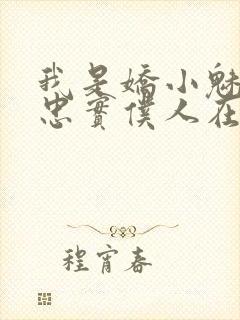 我是嬌小魅
忠實僕人在
程宵春